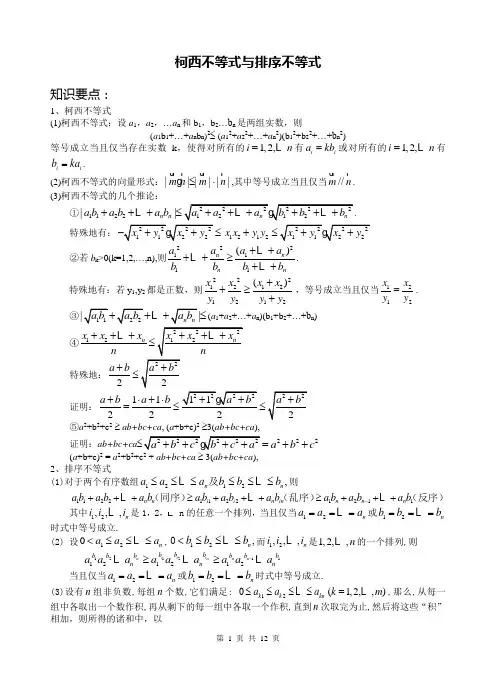 柯西不等式与排序不等式
知识要点：
1、柯西不等式
(1)柯西不等式：设 a₁，a₂，…aₙ 和 b₁，b₂…bₙ 是两组实数，则
(a₁b₁+…+aₙbₙ)²≤ (a₁²+a₂²+…+aₙ²)(b₁²+b₂²+…+bₙ²)
等号成立当且仅当存在实数 k，使得对所有的 i = 1,2,L n 有 aᵢ = kbᵢ 或对所有的 i = 1,2,L n 有
bᵢ = kaᵢ.
(2)柯西不等式的向量形式：| m g n |≤| m |·| n | ,其中等号成立当且仅当 m // n .
(3)柯西不等式的几个推论：
①| a₁b₁ + a₂b₂ + L + aₙbₙ |≤ √(a₁² + a₂² + L + aₙ²) g √(b₁² + b₂² + L + bₙ²) .
特殊地有：−√(x₁² + y₁²) g √(x₂² + y₂²) ≤ x₁x₂ + y₁y₂ ≤ √(x₁² + y₁²) g √(x₂² + y₂²)
②若 bₖ>0(k=1,2,…,n),则 a₁²/b₁ + L + aₙ²/bₙ ≥ (a₁ + L + aₙ)²/(b₁ + L + bₙ) .
特殊地有：若 y₁,y₂ 都是正数，则 x₁²/y₁ + x₂²/y₂ ≥ (x₁ + x₂)²/(y₁ + y₂) ，等号成立当且仅当 x₁/y₁ = x₂/y₂ .
③| √(a₁b₁) + √(a₂b₂) + L + √(aₙbₙ) |≤ (a₁+a₂+…+aₙ)(b₁+b₂+…+bₙ)
④ (x₁ + x₂ + L + xₙ)/n ≤ √((x₁² + x₂² + L + xₙ²)/n)
特殊地：(a + b)/2 ≤ √((a² + b²)/2)
证明：(a + b)/2 = (1·a + 1·b)/2 ≤ √(1² + 1²) g √(a² + b²)/2 ≤ √((a² + b²)/2)
⑤a²+b²+c² ≥ ab+bc+ca, (a+b+c)² ≥3(ab+bc+ca),
证明：ab+bc+ca≤ √(a² + b² + c²) g √(b² + c² + a²) = a² + b² + c²
(a+b+c)² = a²+b²+c² + ab+bc+ca ≥ 3(ab+bc+ca),
2、排序不等式
(1)对于两个有序数组 a₁ ≤ a₂ ≤ L ≤ aₙ 及 b₁ ≤ b₂ ≤ L ≤ bₙ , 则
a₁b₁ + a₂b₂ + L + aₙbₙ (同序) ≥ a₁bᵢ₁ + a₂bᵢ₂ + L + aₙbᵢₙ (乱序) ≥ a₁bₙ + a₂bₙ₋₁ + L + aₙb₁（反序）
其中 i₁, i₂, L , iₙ 是 1，2，L n 的任意一个排列，当且仅当 a₁ = a₂ = L = aₙ 或 b₁ = b₂ = L = bₙ
时式中等号成立.
(2) 设 0 < a₁ ≤ a₂ ≤ L ≤ aₙ , 0 < b₁ ≤ b₂ ≤ L ≤ bₙ , 而 i₁, i₂, L , iₙ 是 1, 2, L , n 的一个排列, 则
a₁^b₁ a₂^b₂ L aₙ^bₙ ≥ a₁^bᵢ₁ a₂^bᵢ₂ L aₙ^bᵢₙ ≥ a₁^bₙ a₂^bₙ₋₁ L aₙ^b₁
当且仅当 a₁ = a₂ = L = aₙ 或 b₁ = b₂ = L = bₙ 时式中等号成立.
(3)设有 n 组非负数,每组 n 个数,它们满足: 0 ≤ aₖ₁ ≤ aₖ₂ ≤ L ≤ aₖₙ (k = 1,2,L , m) ,那么,从每一
组中各取出一个数作积,再从剩下的每一组中各取一个作积,直到 n 次取完为止,然后将这些“积”
相加，则所得的诸和中，以
第 1 页 共 12 页